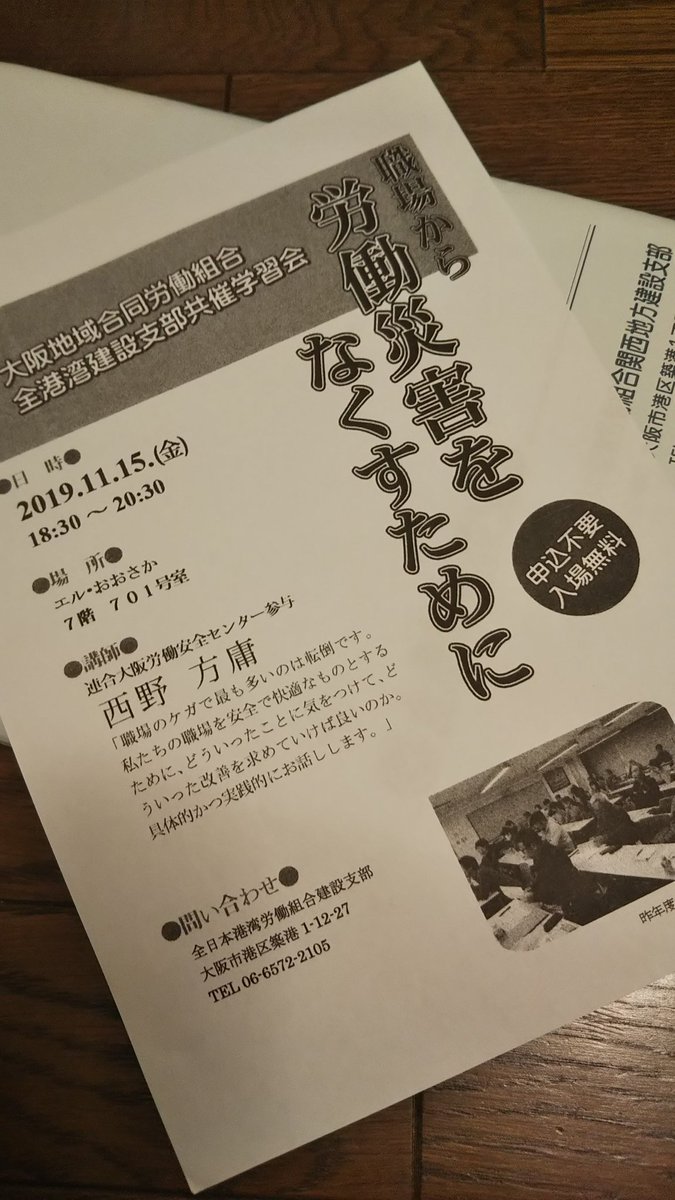 職場から
労働災害を
なくすために
大阪地域合同労働組合
全港湾建設支部共催学習会
●日　時●
2019.11.15.(金)
18:30 ～ 20:30
●場　所●
エル・おおさか
７階　７０１号室
●講師●
連合大阪労働安全センター参与
西野　方庸
「職場のケガで最も多いのは転倒です。
私たちの職場を安全で快適なものとする
ために、どういったことに気をつけて、ど
ういった改善を求めていけば良いのか。
具体的かつ実践的にお話しします。」
申込不要
入場無料
昨年度
●問い合わせ●
全日本港湾労働組合建設支部
大阪市港区築港 1-12-27
TEL 06-6572-2105
組合関西地方建設支部
大阪市港区築港1丁